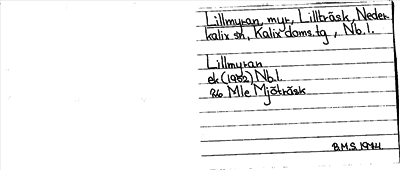 Lillmyran, myr, Lillträsk, Neder-
kalix sn, Kalix doms.tg, Nb.l.
Lillmyran
ek (1962) Nb.l.
26 Mle Mjöträsk
B.M.S. 1974